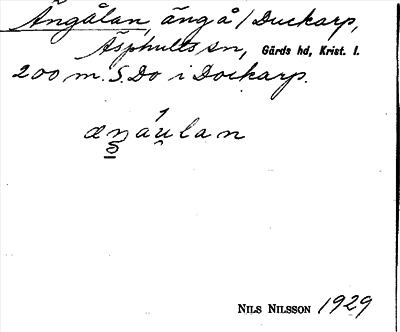 Ängålan, ängå / Duckarp,
Äsphults sn, Gärds hd, Krist. l.
200 m. S. Do i Dockarp.
æŋáu̯lan
NILS NILSSON 1929